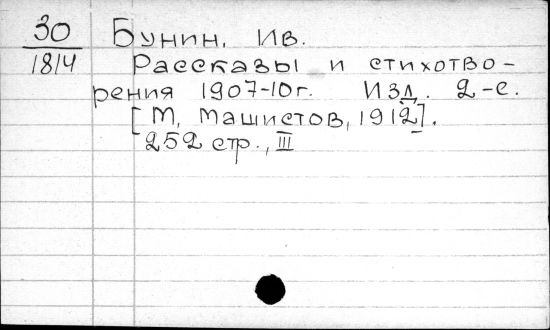 30
1814
Бунин, Ив.
Рассказы и стихотво-
рения 1907-10г. Изд. 2-е.
[М, Машистов, 1912].
252 стр., III